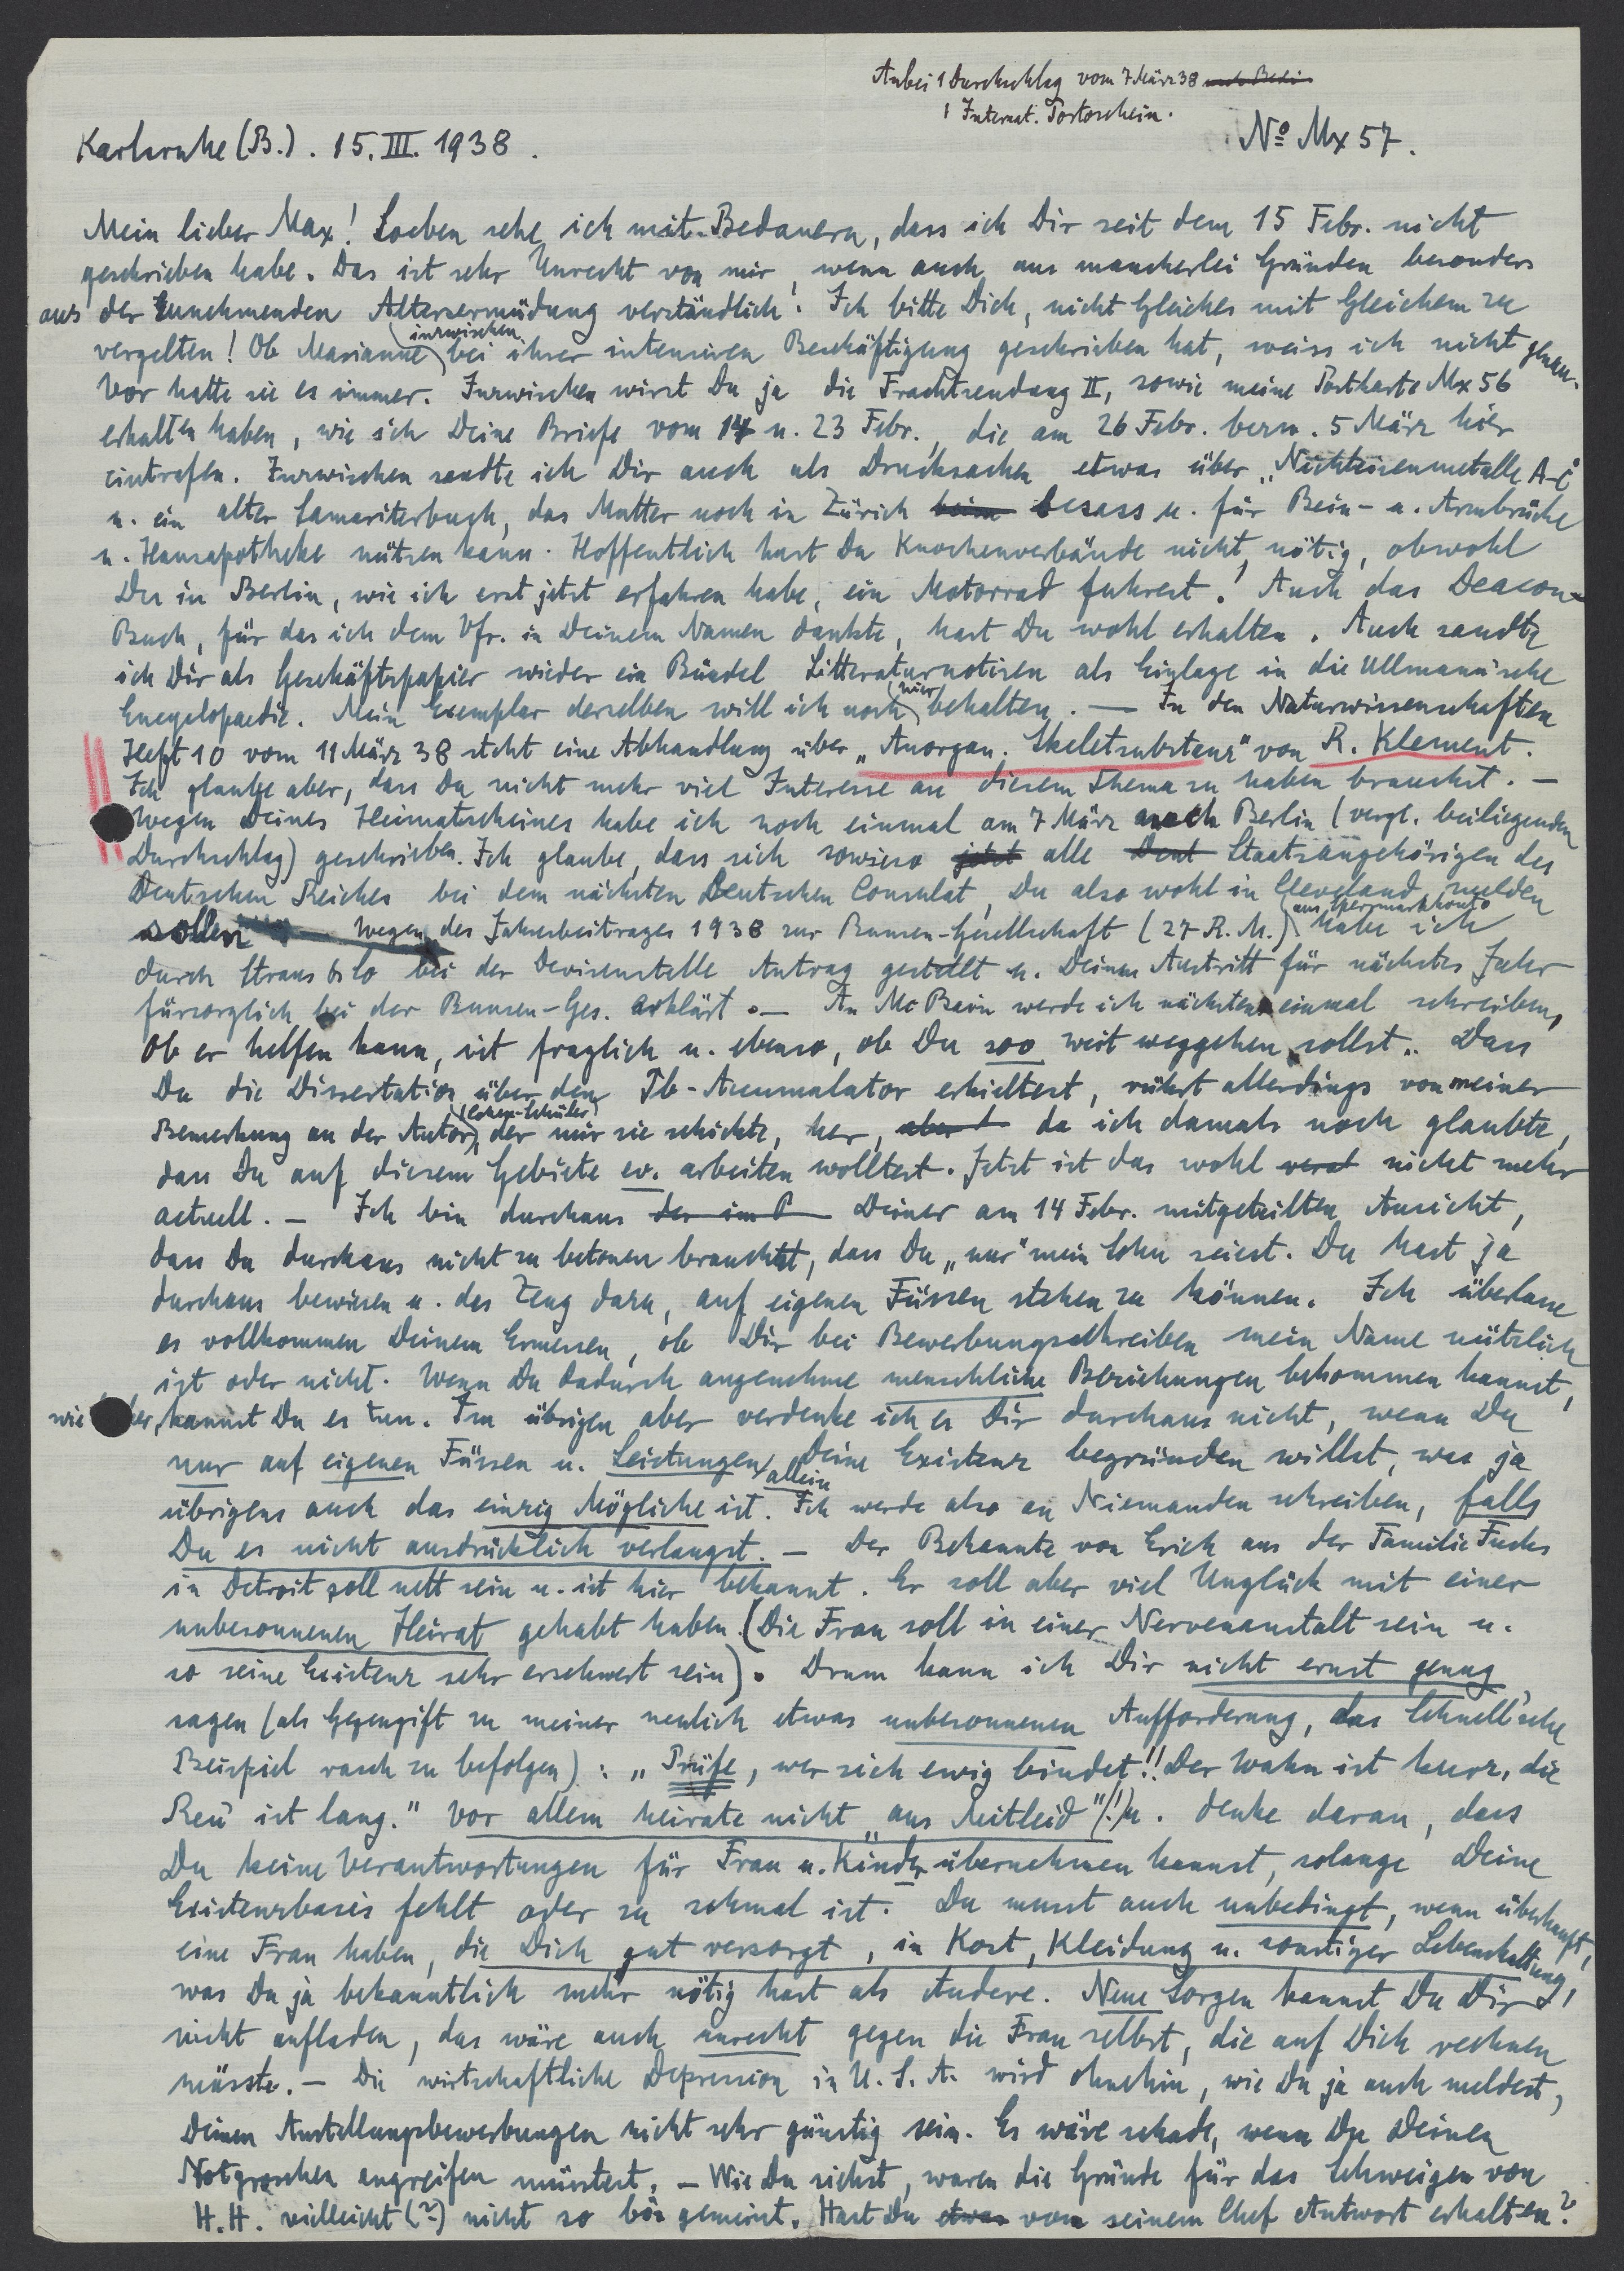 Anbei 1 Durchschlag vom 7 März 38 nach Berlin
1 Internat. Portoschein.
Karlsruhe (B.). 15. III. 1938.
No Mx 57.
Mein lieber Max! Soeben sehe ich mit Bedauern, dass ich Dir seit dem 15 Febr. nicht
geschrieben habe. Das ist sehr Unrecht von mir, wenn auch aus mancherlei Gründen besonders
aus der zunehmenden Altersermüdung verständlich! Ich bitte Dich, nicht Gleiches mit Gleichem zu
vergelten! Ob Marianne inzwischen bei ihrer intensiven Beschäftigung geschrieben hat, weiss ich nicht genau.
Vor hatte sie es immer. Inzwischen wirst Du ja die Frachtsendung II, sowie meine Postkarte Mx 56
erhalten haben, wie ich Deine Briefe vom 14 u. 23 Febr., die am 26 Febr. bezw. 5 März hier
eintrafen. Inzwischen sandte ich Dir auch als Drucksachen etwas über „Nichteisenmetalle A-C"
u. ein altes Samariterbuch, das Mutter noch in Zürich beim besass u. für Bein- u. Armbrüche
u. Hausapotheke nützen kann. Hoffentlich hast Du Knochenverbände nicht nötig, obwohl
Du in Berlin, wie ich erst jetzt erfahren habe, ein Motorrad fuhrest! Auch das Deacon-
Buch, für das ich dem Vfr. in Deinem Namen dankte, hast Du wohl erhalten. Auch sandte
ich Dir als Geschäftspapier wieder ein Bündel Litteraturnotizen als Einlage in die Ullmann'sche
Encyclopaedie. Mein Exemplar derselben will ich noch hier behalten. — In den Naturwissenschaften
Heft 10 vom 11 März 38 steht eine Abhandlung über „Anorgan. Skeletsubstanz" von R. Klement.
Ich glaube aber, dass Du nicht mehr viel Interesse an diesem Thema zu haben brauchst. —
Wegen Deines Heimatscheines habe ich noch einmal am 7 März nach Berlin (vergl. beiliegenden
Durchschlag) geschrieben. Ich glaube, dass sich sowieso jetzt alle Deut Staatsangehörigen des
Deutschen Reiches bei dem nächsten Deutschen Consulat, Du also wohl in Cleveland, melden
sollen Wegen des Jahresbeitrages 1938 zur Bunsen-Gesellschaft (27 R.M.) aus Sperrmarkkonto habe ich
durch Straus & Co bei der Devisenstelle Antrag gestellt u. Deinen Austritt für nächstes Jahr
fürsorglich bei der Bunsen-Ges. erklärt. — An Mc Bain werde ich nächstens einmal schreiben,
Ob er helfen kann, ist fraglich u. ebenso, ob Du soo weit weggehen sollst. Dass
Du die Dissertation über den Pb-Accumulator erhieltest, rührt allerdings von meiner
Bemerkung an der Autor, der mir sie schickte, her, aber da ich damals noch glaubte,
dass Du auf diesem Gebiete ev. arbeiten wolltest. Jetzt ist das wohl nicht mehr
actuell. — Ich bin durchaus der im Deiner am 14 Febr. mitgeteilten Ansicht,
dass Du durchaus nicht zu betonen brauchtst, dass Du „nur" mein Sohn seiest. Du hast ja
durchaus bewiesen u. das Zeug dazu, auf eigenen Füssen stehen zu können. Ich überlasse
es vollkommen Deinem Ermessen, ob Dir bei Bewerbungsschreiben mein Name nützlich
ist oder nicht. Wenn Du dadurch angenehme menschliche Beziehungen bekommen kannst,
wie er, kannst Du es tun. Im übrigen aber verdenke ich es Dir durchaus nicht, wenn Du
nur auf eigenen Füssen u. Leistungen allein Deine Existenz begründen willst, was ja
übrigens auch das einzig Mögliche ist. Ich werde also an Niemanden schreiben, falls
Du es nicht ausdrücklich verlangst. — Der Bekannte von Erich aus der Familie Fuchs
in Detroit soll nett sein u. ist hier bekannt. Er soll aber viel Unglück mit einer
unbesonnenen Heirat gehabt haben. (Die Frau soll in einer Nervenanstalt sein u.
so seine Existenz sehr erschwert sein). Drum kann ich Dir nicht ernst genug
sagen (als Gegengift zu meiner neulich etwas unbesonnenen Aufforderung, das Schnell'sche
Beispiel rasch zu befolgen): „Prüfe, wer sich ewig bindet!! Der Wahn ist kurz, die
Reu' ist lang." Vor allem heirate nicht „aus Mitleid"(!) u. denke daran, dass
Du keine Verantwortungen für Frau u. Kinder übernehmen kannst, solange Deine
Existenzbasis fehlt oder zu schmal ist. Du musst auch unbedingt, wenn überhaupt,
eine Frau haben, die Dich gut versorgt, in Kost, Kleidung u. sonstiger Lebenshaltung,
was Du ja bekanntlich mehr nötig hast als Andere. Neue Sorgen kannst Du Dir
nicht aufladen, das wäre auch unrecht gegen die Frau selbst, die auf Dich rechnen
müsste. — Die wirtschaftliche Depression in U.S.A. wird ohnehin, wie Du ja auch meldest,
Deinen Anstellungsbewerbungen nicht sehr günstig sein. Es wäre schade, wenn Du Deinen
Notgroschen angreifen müsstest. — Wie Du siehst, waren die Gründe für das Schweigen von
H.H. vielleicht (?) nicht so bös gemeint. Hast Du etwas von seinem Chef Antwort erhalten?